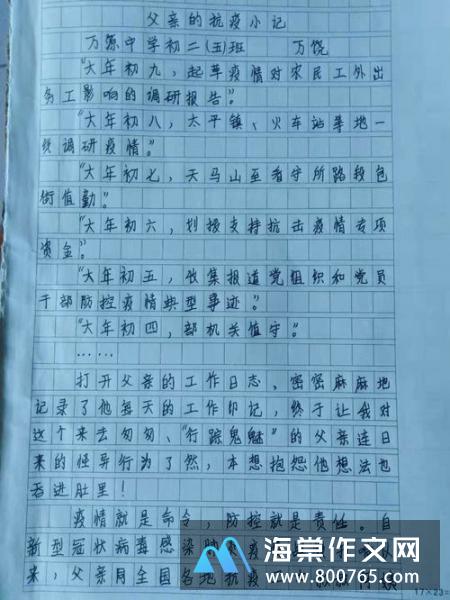 父亲的抗疫小记
万源中学初二(五)班 万饶
“大年初九，起草疫情对农民工外出
务工影响的调研报告。”
“大年初八，太平镇、火车站等地一
线调研疫情。”
“大年初七，天马山至看守所路段包
街值勤。”
“大年初六，划拨支持抗击疫情专项
资金。”
“大年初五，收集报道党组织和党员
干部防控疫情典型事迹。”
“大年初四，部机关值守。”
……
打开父亲的工作日志，密密麻麻地
记录了他每天的工作印记，终于让我对
这个来去匆匆、“行踪鬼魅”的父亲连日
来的怪异行为了然，本想抱怨他想法也
吞进肚里！
疫情就是命令，防控就是责任。自
新型冠状病毒感染肺炎疫
来，父亲同全国各地抗疫
海棠作文网
www.800765.com
17×23=